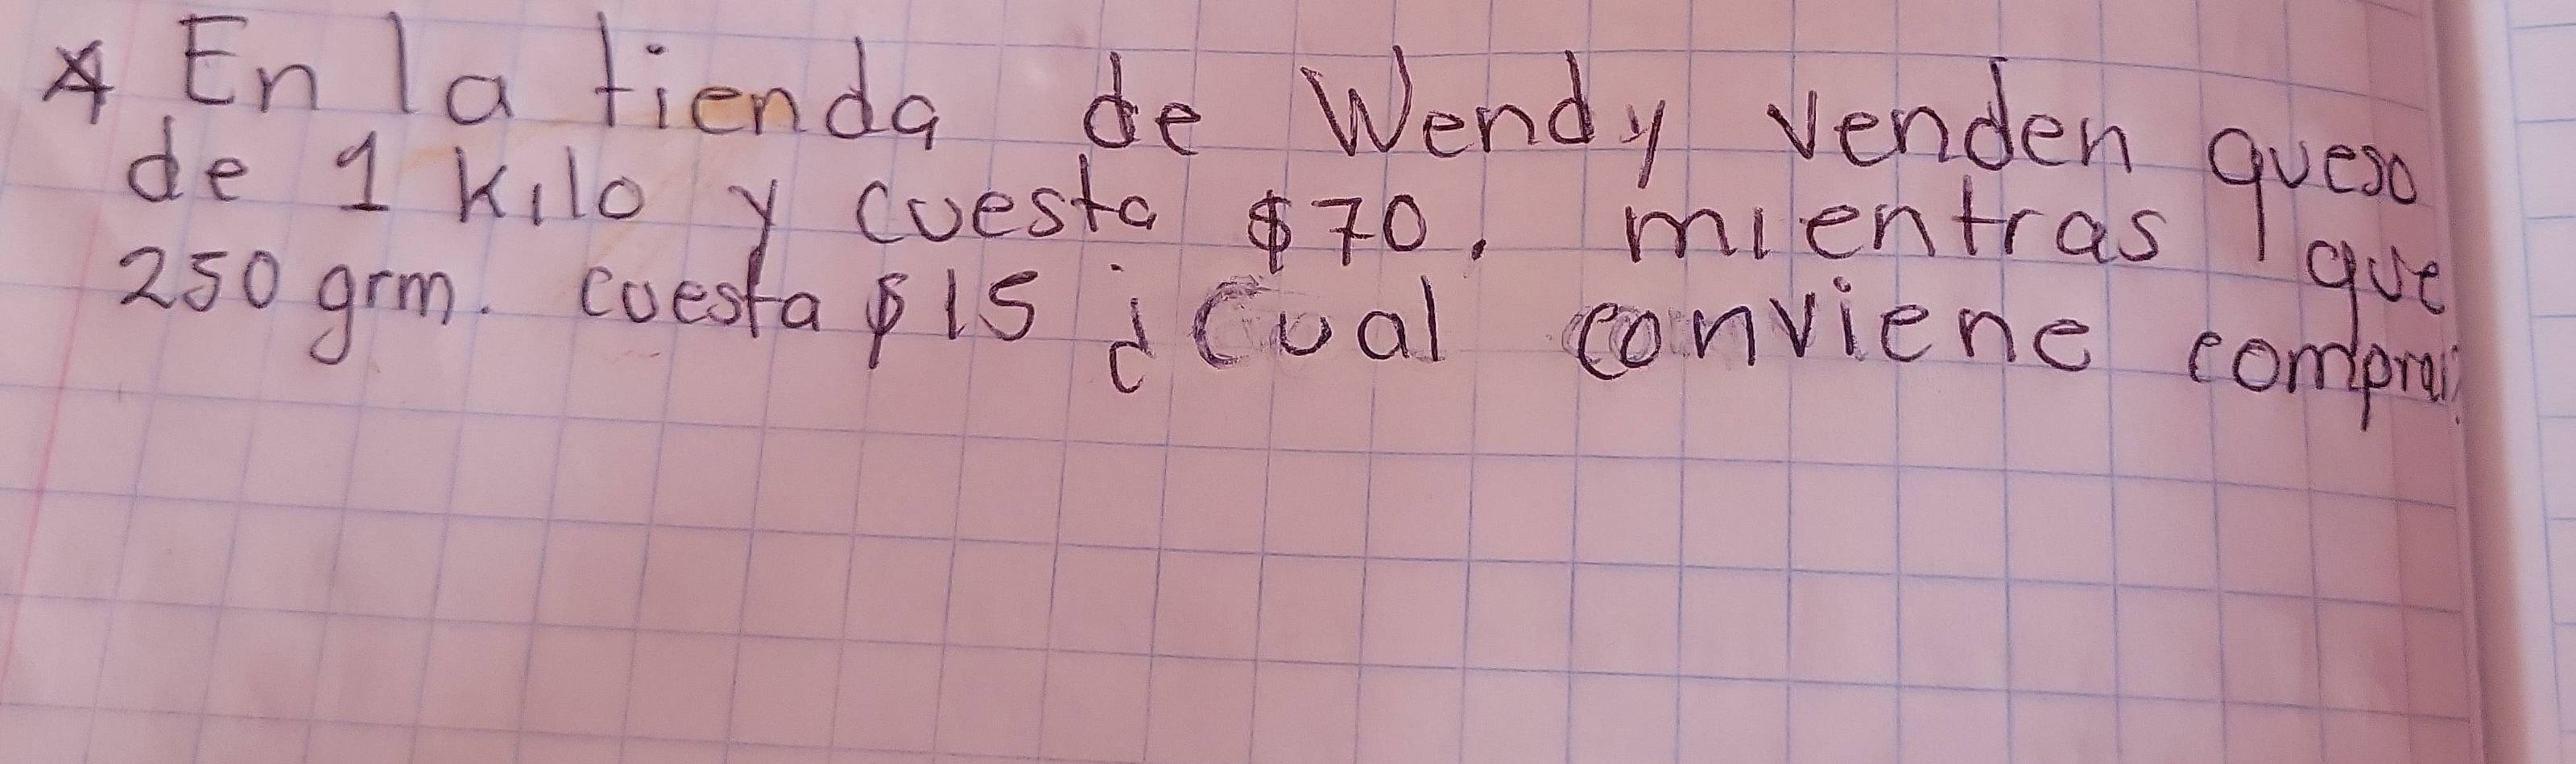 * En la tienda de Wendy venden queso
de 1 kilo y cuesta $70. mientras que
250 grm. cuesta $15 ¿Cual conviene comprar?